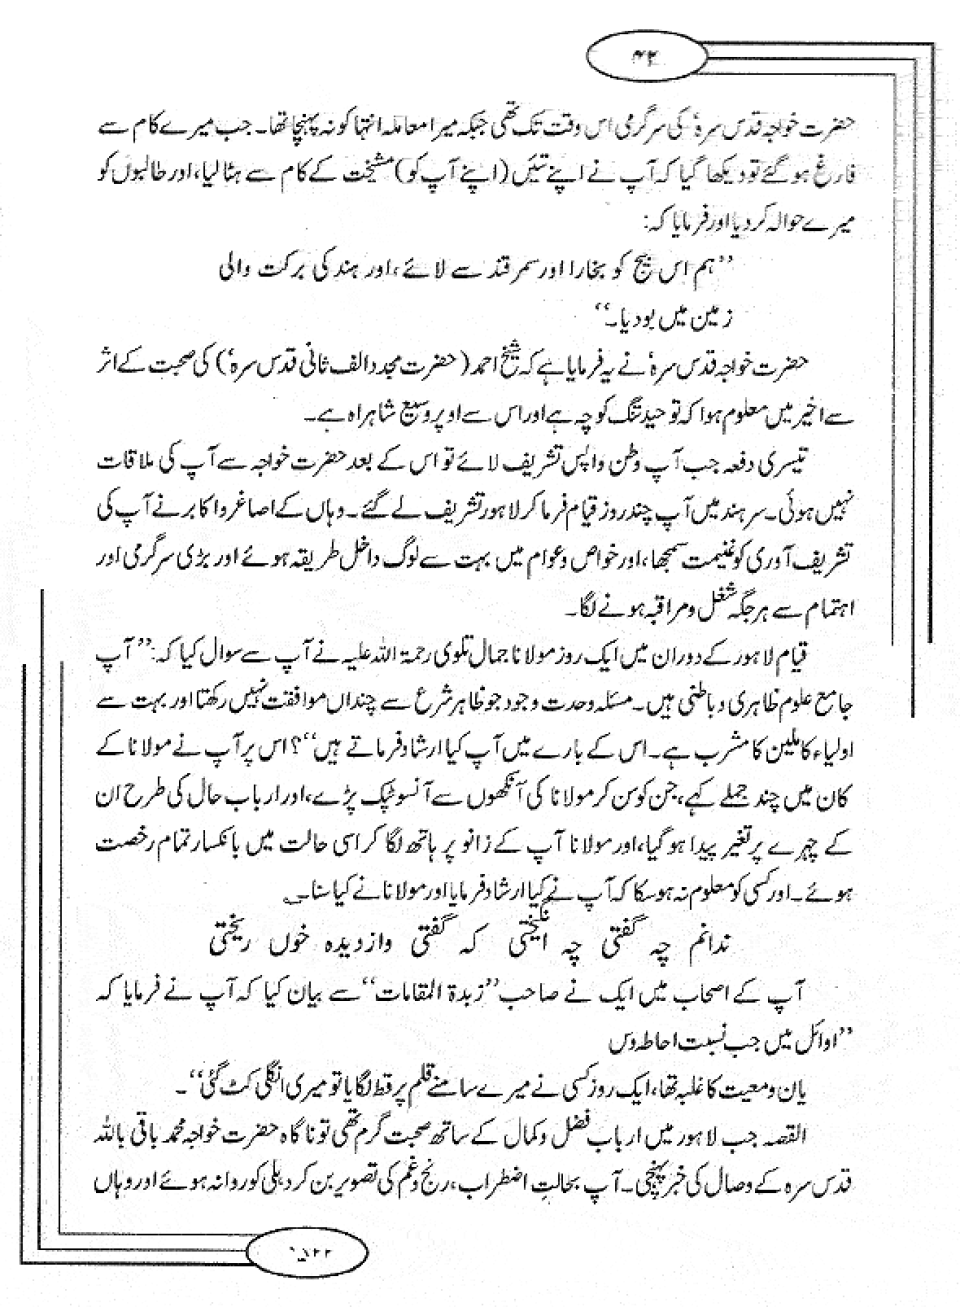 ۴۲
حضرت خواجہ قدس سرہٗ کی سرگرمی اس وقت تک تھی جبکہ میرا معاملہ انتہا کو نہ پہنچا تھا۔ جب میرے کام سے
فارغ ہو گئے تو دیکھا گیا کہ آپ نے اپنے تئیں (اپنے آپ کو) مشیخت کے کام سے ہٹا لیا، اور طالبوں کو
میرے حوالہ کر دیا اور فرمایا کہ:
”ہم اس بیج کو بخارا اور سمرقند سے لائے، اور ہند کی برکت والی
زمین میں بو دیا۔“
حضرت خواجہ قدس سرہٗ نے یہ فرمایا ہے کہ شیخ احمد (حضرت مجدد الف ثانی قدس سرہٗ) کی صحبت کے اثر
سے اخیر میں معلوم ہوا کہ توحید تنگ کوچہ ہے اور اس سے اوپر وسیع شاہراہ ہے۔
تیسری دفعہ جب آپ وطن واپس تشریف لائے تو اس کے بعد حضرت خواجہ سے آپ کی ملاقات
نہیں ہوئی۔ سرہند میں آپ چند روز قیام فرما کر لاہور تشریف لے گئے۔ وہاں کے اصاغر و اکابر نے آپ کی
تشریف آوری کو غنیمت سمجھا، اور خواص و عوام میں بہت سے لوگ داخل طریقہ ہوئے اور بڑی سرگرمی اور
اہتمام سے ہر جگہ شغل و مراقبہ ہونے لگا۔
قیام لاہور کے دوران میں ایک روز مولانا جمال تلوی رحمۃ اللہ علیہ نے آپ سے سوال کیا کہ: ”آپ
جامع علوم ظاہری و باطنی ہیں۔ مسئلہ وحدت وجود جو ظاہر شرع سے چنداں موافقت نہیں رکھتا اور بہت سے
اولیاء کاملین کا مشرب ہے۔ اس کے بارے میں آپ کیا ارشاد فرماتے ہیں“؟ اس پر آپ نے مولانا کے
کان میں چند جملے کہے، جن کو سن کر مولانا کی آنکھوں سے آنسو ٹپک پڑے، اور ارباب حال کی طرح ان
کے چہرے پر تغیر پیدا ہو گیا، اور مولانا آپ کے زانو پر ہاتھ لگا کر اسی حالت میں بانکسار تمام رخصت
ہوئے۔ اور کسی کو معلوم نہ ہو سکا کہ آپ نے کیا ارشاد فرمایا اور مولانا نے کیا سنا۔
ندانم چہ گفتی چہ انگیختی کہ گفتی و از دیدہ خوں ریختی
آپ کے اصحاب میں ایک نے صاحب ”زبدۃ المقامات“ سے بیان کیا کہ آپ نے فرمایا کہ
”اوائل میں جب نسبت احاطہ وس
یان و معیت کا غلبہ تھا، ایک روز کسی نے میرے سامنے قلم پر قط لگایا تو میری انگلی کٹ گئی“۔
القصہ جب لاہور میں ارباب فضل و کمال کے ساتھ صحبت گرم تھی تو ناگاہ حضرت خواجہ محمد باقی باللہ
قدس سرہ کے وصال کی خبر پہنچی۔ آپ بحالتِ اضطراب، رنج و غم کی تصویر بن کر دہلی کو روانہ ہوئے اور وہاں